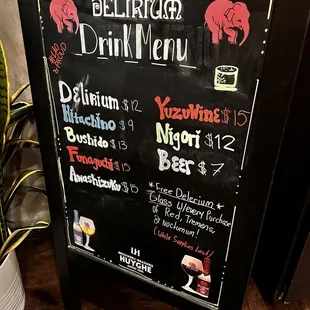 DELIRIUM
Drink Menu
Delirium $12
Hitachino $9
Bushido $13
Funaguchi $15
Awashizuku $15
YuzuWine $15
Nigori $12
Beer $7
*Free Delerium*
Glass w/every Purchase
of Red, Tremens,
& Nocturnum!
(While Supplies Last)
LH
HUYGHE